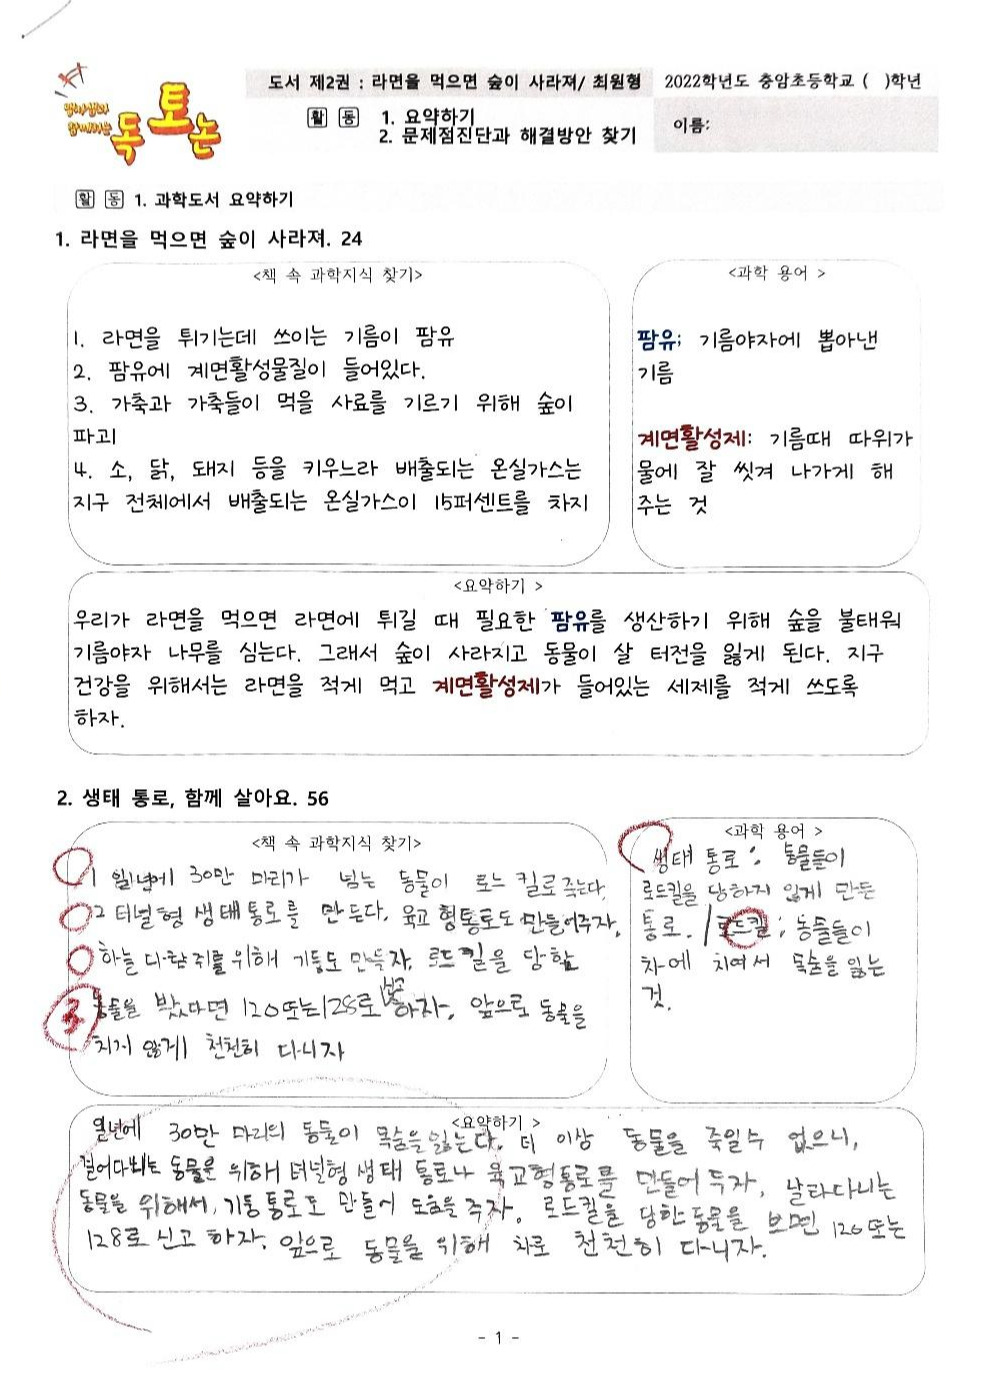 독토논
도서 제2권 : 라면을 먹으면 숲이 사라져/ 최원형
2022학년도 충암초등학교 ( )학년
활 동 1. 요약하기
2. 문제점진단과 해결방안 찾기
이름:
활 동 1. 과학도서 요약하기
1. 라면을 먹으면 숲이 사라져. 24
<책 속 과학지식 찾기>
1. 라면을 튀기는데 쓰이는 기름이 팜유
2. 팜유에 계면활성물질이 들어있다.
3. 가축과 가축들이 먹을 사료를 기르기 위해 숲이
파괴
4. 소, 닭, 돼지 등을 키우느라 배출되는 온실가스는
지구 전체에서 배출되는 온실가스이 15퍼센트를 차지
<과학 용어 >
팜유; 기름야자에 뽑아낸
기름
계면활성제: 기름때 따위가
물에 잘 씻겨 나가게 해
주는 것
<요약하기 >
우리가 라면을 먹으면 라면에 튀길 때 필요한 팜유를 생산하기 위해 숲을 불태워
기름야자 나무를 심는다. 그래서 숲이 사라지고 동물이 살 터전을 잃게 된다. 지구
건강을 위해서는 라면을 적게 먹고 계면활성제가 들어있는 세제를 적게 쓰도록
하자.
2. 생태 통로, 함께 살아요. 56
<책 속 과학지식 찾기>
1 일년에 30만 마리가 넘는 동물이 로드 킬로 죽는다.
2 터널형 생태통로를 만든다. 육교 형통로도 만들어주자.
하늘 다람쥐를 위해 기둥도 만들자. 로드킬을 당한
동물을 봤다면 120또는128로 신고 하자. 앞으로 동물을
치지 않게 천천히 다니자
3
<과학 용어 >
생태 통로: 동물들이
로드킬을 당하지 않게 만든
통로. / 로드킬; 동물들이
차에 치여서 목숨을 잃는
것.
<요약하기 >
일년에 30만 마리의 동물이 목숨을 잃는다. 더 이상 동물을 죽일수 없으니,
걸어다니는 동물은 위해 터널형 생태 통로나 육교형통로를 만들어 두자. 날라다니는
동물을 위해서, 기둥통로도 만들어 도움을 주자. 로드킬을 당한 동물을 보면 120 또는
128로 신고 하자. 앞으로 동물을 위해 차로 천천히 다니자.
- 1 -